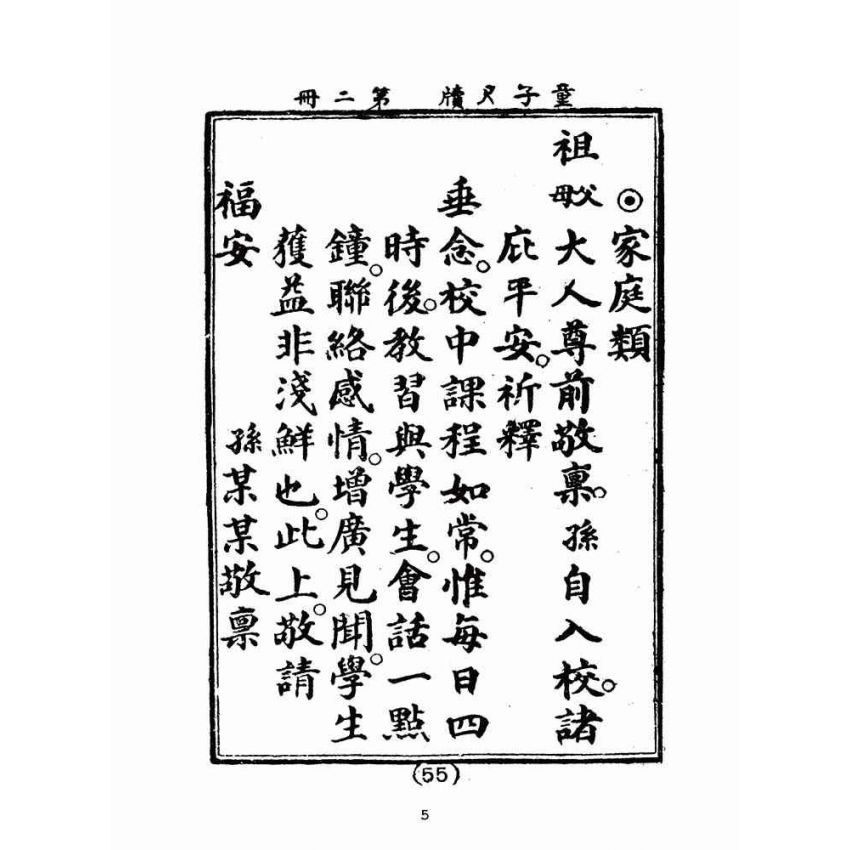 童子尺牘 第二冊
◉家庭類
祖父母大人尊前敬稟。孫自入校。諸
庇平安。祈釋
垂念。校中課程如常。惟每日四
時後。教習與學生。會話一點
鐘。聯絡感情。增廣見聞。學生
獲益非淺鮮也。此上。敬請
福安
孫某某敬稟
(55)
5